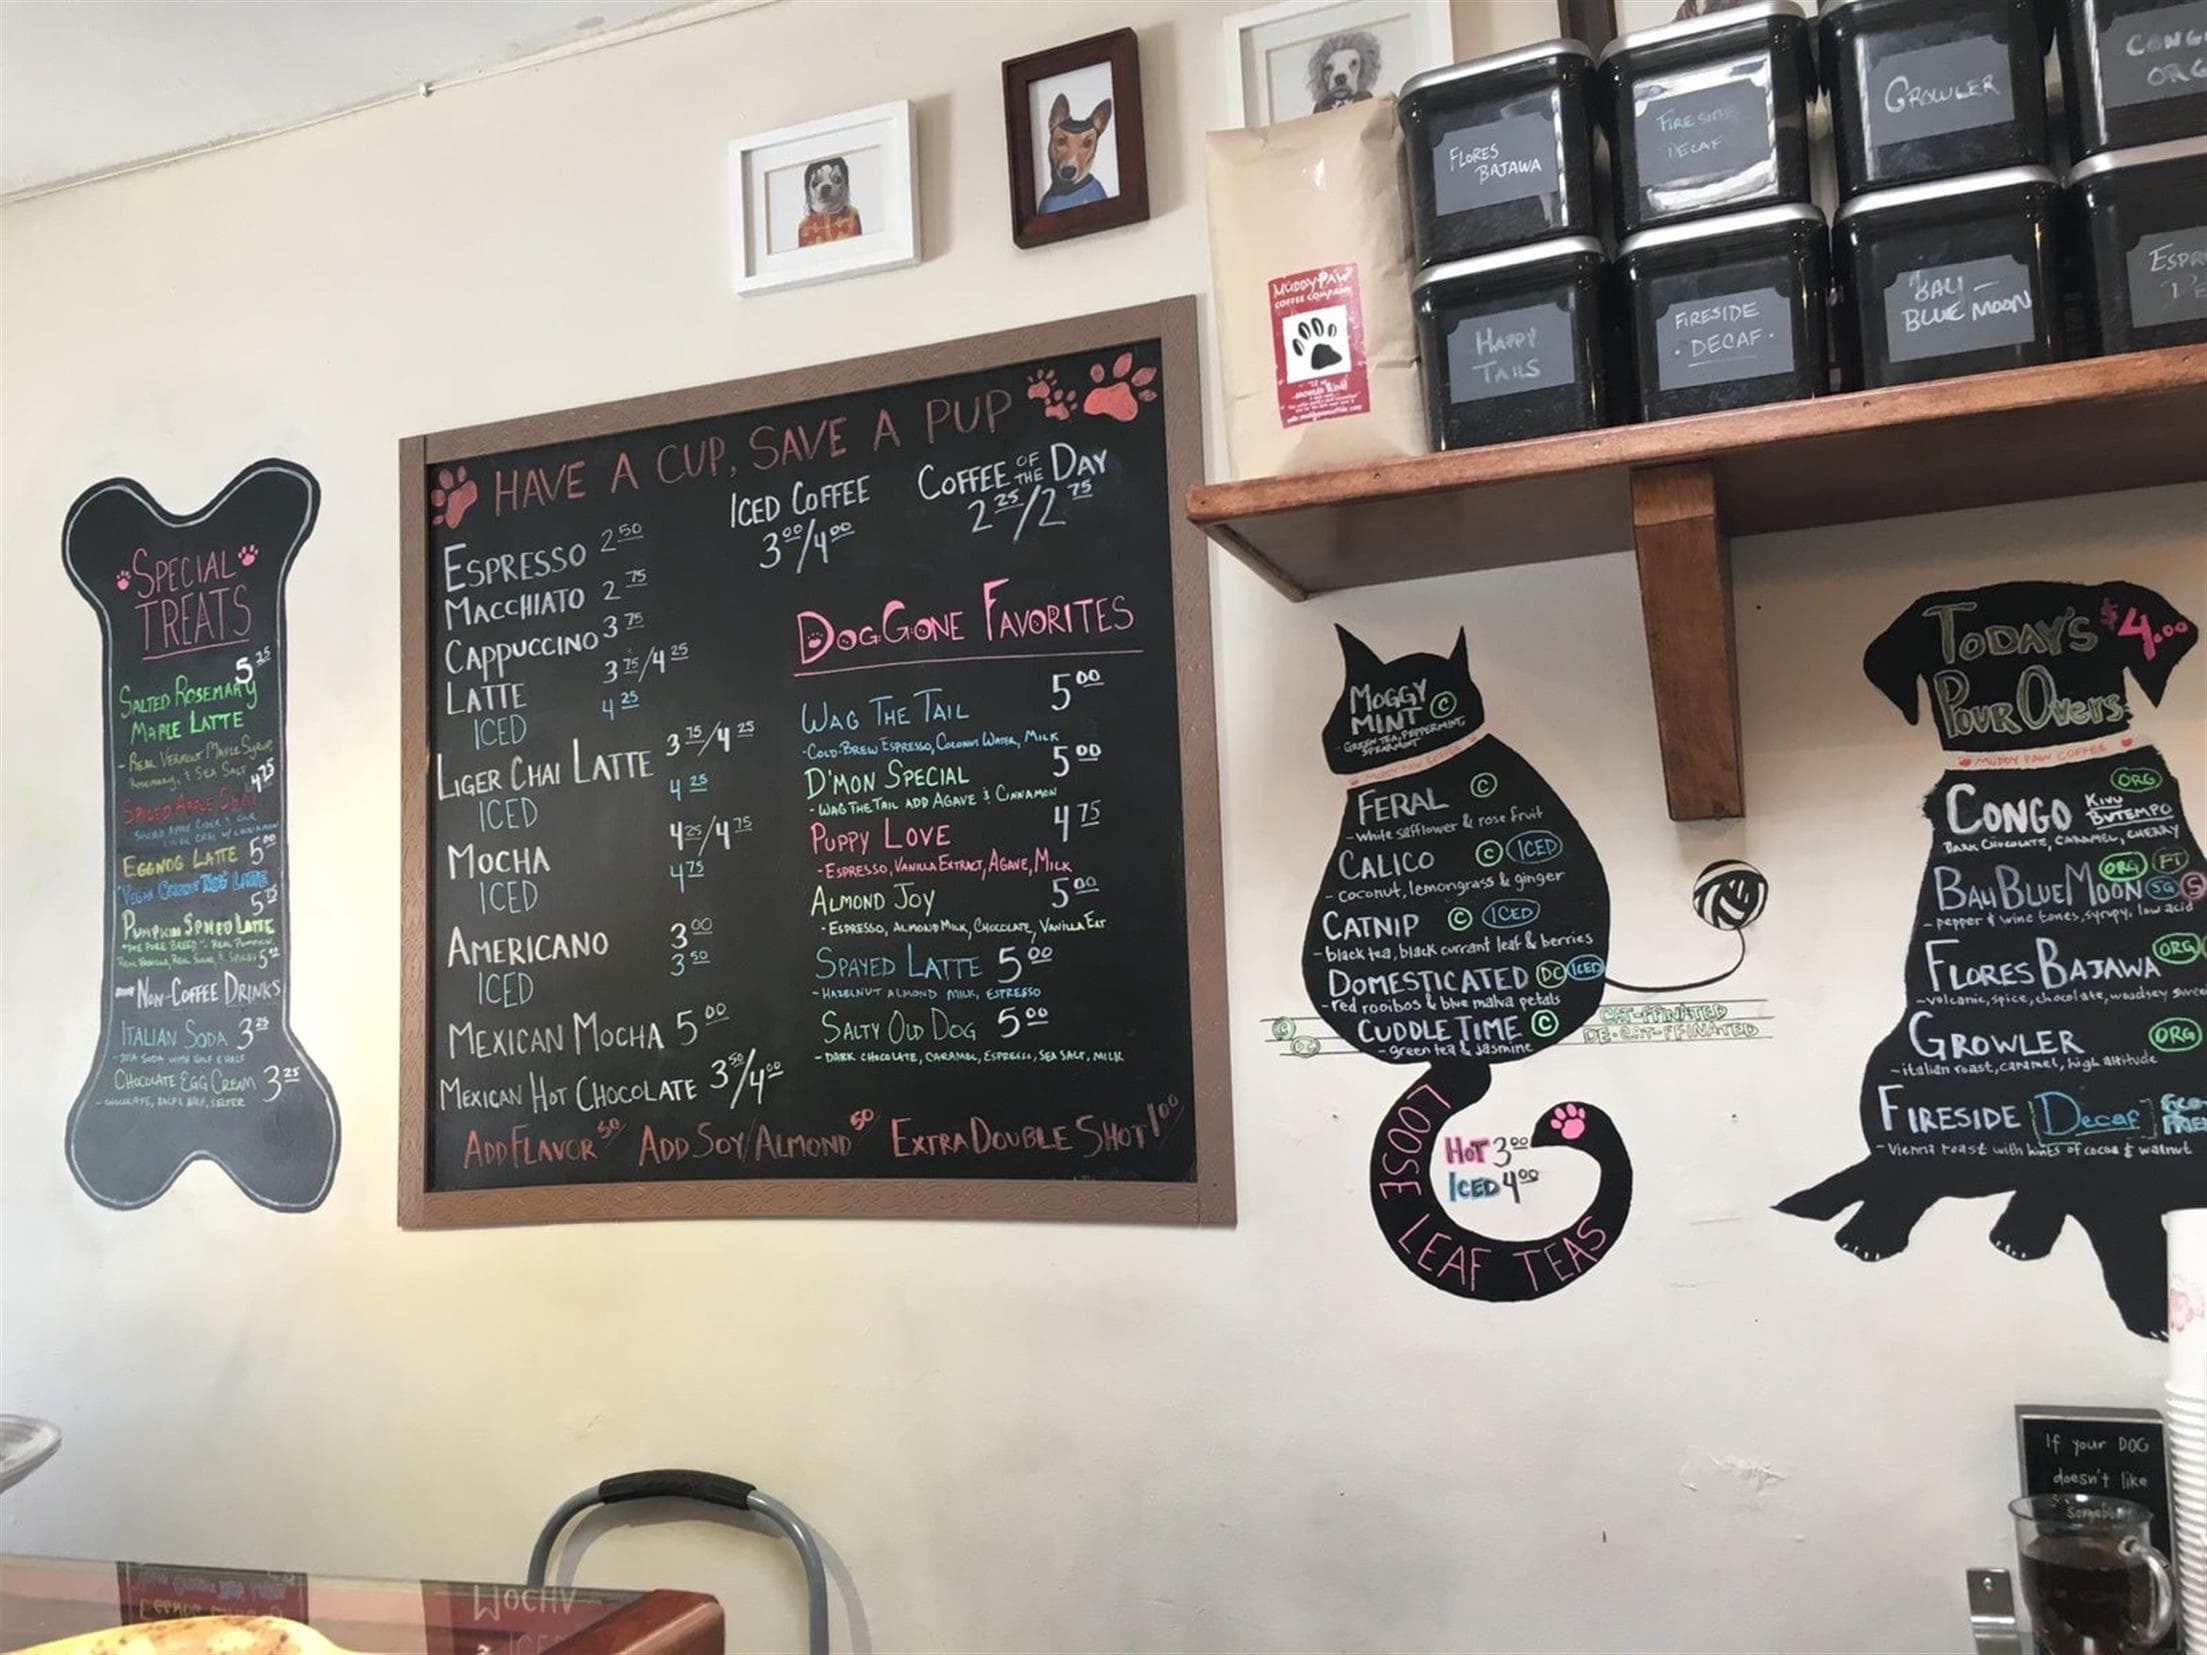 SPECIAL
TREATS
5 25
SALTED ROSEMARY
MAPLE LATTE
- REAL VERMONT MAPLE SYRUP,
ROSEMARY, & SEA SALT
4 75
SPICED APPLE
EGGNOG LATTE 5 00
VEGAN NOG LATTE
5 75
PUMPKIN SPICED LATTE
"THE PURE BREED" - REAL PUMPKIN,
REAL VANILLA, REAL SUGAR, & SPICES
NON-COFFEE DRINKS
ITALIAN SODA 3 25
- SODA WITH HALF & HALF
CHOCOLATE EGG CREAM 3 25
- CHOCOLATE, HALF & HALF, SELTZER
HAVE A CUP, SAVE A PUP
ICED COFFEE
3 00/4 00
COFFEE OF THE DAY
2 25/2 75
ESPRESSO 2 50
MACCHIATO 2 75
CAPPUCCINO 3 75
LATTE 3 75/4 25
ICED 4 25
LIGER CHAI LATTE 3 75/4 25
ICED 4 25
MOCHA 4 25/4 75
ICED 4 75
AMERICANO 3 00
ICED 3 50
MEXICAN MOCHA 5 00
MEXICAN HOT CHOCOLATE 3 50/4 00
DOG GONE FAVORITES
WAG THE TAIL 5 00
- COLD-BREW ESPRESSO, COCONUT WATER, MILK
D'MON SPECIAL 5 00
- WAG THE TAIL ADD AGAVE & CINNAMON
PUPPY LOVE 4 75
- ESPRESSO, VANILLA EXTRACT, AGAVE, MILK
ALMOND JOY 5 00
- ESPRESSO, ALMOND MILK, CHOCOLATE, VANILLA EXT
SPAYED LATTE 5 00
- HAZELNUT ALMOND MILK, ESPRESSO
SALTY OLD DOG 5 00
- DARK CHOCOLATE, CARAMEL, ESPRESSO, SEA SALT, MILK
ADD FLAVOR 50 ADD SOY/ALMOND 50 EXTRA DOUBLE SHOT 1 00
MUDDY PAW
COFFEE COMPANY
FLORES
BAJAWA
FIRESIDE
DECAF
GROWLER
CONG
ORG
HAPPY
TAILS
FIRESIDE
· DECAF ·
BALI -
BLUE MOON
ESPR
DE
MOGGY
MINT C
- GREEN TEA, PEPPERMINT,
SPEARMINT
MUDDY PAW COFFEE
FERAL C
- white safflower & rose fruit
CALICO C ICED
- coconut, lemongrass & ginger
CATNIP C ICED
- black tea, black currant leaf & berries
DOMESTICATED DC ICED
- red rooibos & blue malva petals
CUDDLE TIME C
- green tea & jasmine
C CAT-FFINATED
DC DE-CAT-FFINATED
HOT 3 00
ICED 4 00
LOOSE LEAF TEAS
TODAY'S $4.00
POUR OVERS
MUDDY PAW COFFEE
ORG
CONGO KIVU
BUTEMPO
DARK CHOCOLATE, CARAMEL, CHERRY
ORG FT
BALI BLUE MOON SG S
- pepper & wine tones, syrupy, low acid
FLORES BAJAWA ORG
- volcanic, spice, chocolate, woodsey
GROWLER ORG
- italian roast, caramel, high altitude
FIRESIDE [Decaf] ECO-
FRIE
- Vienna roast with hints of cocoa & walnut
If your DOG
doesn't like
Somebody